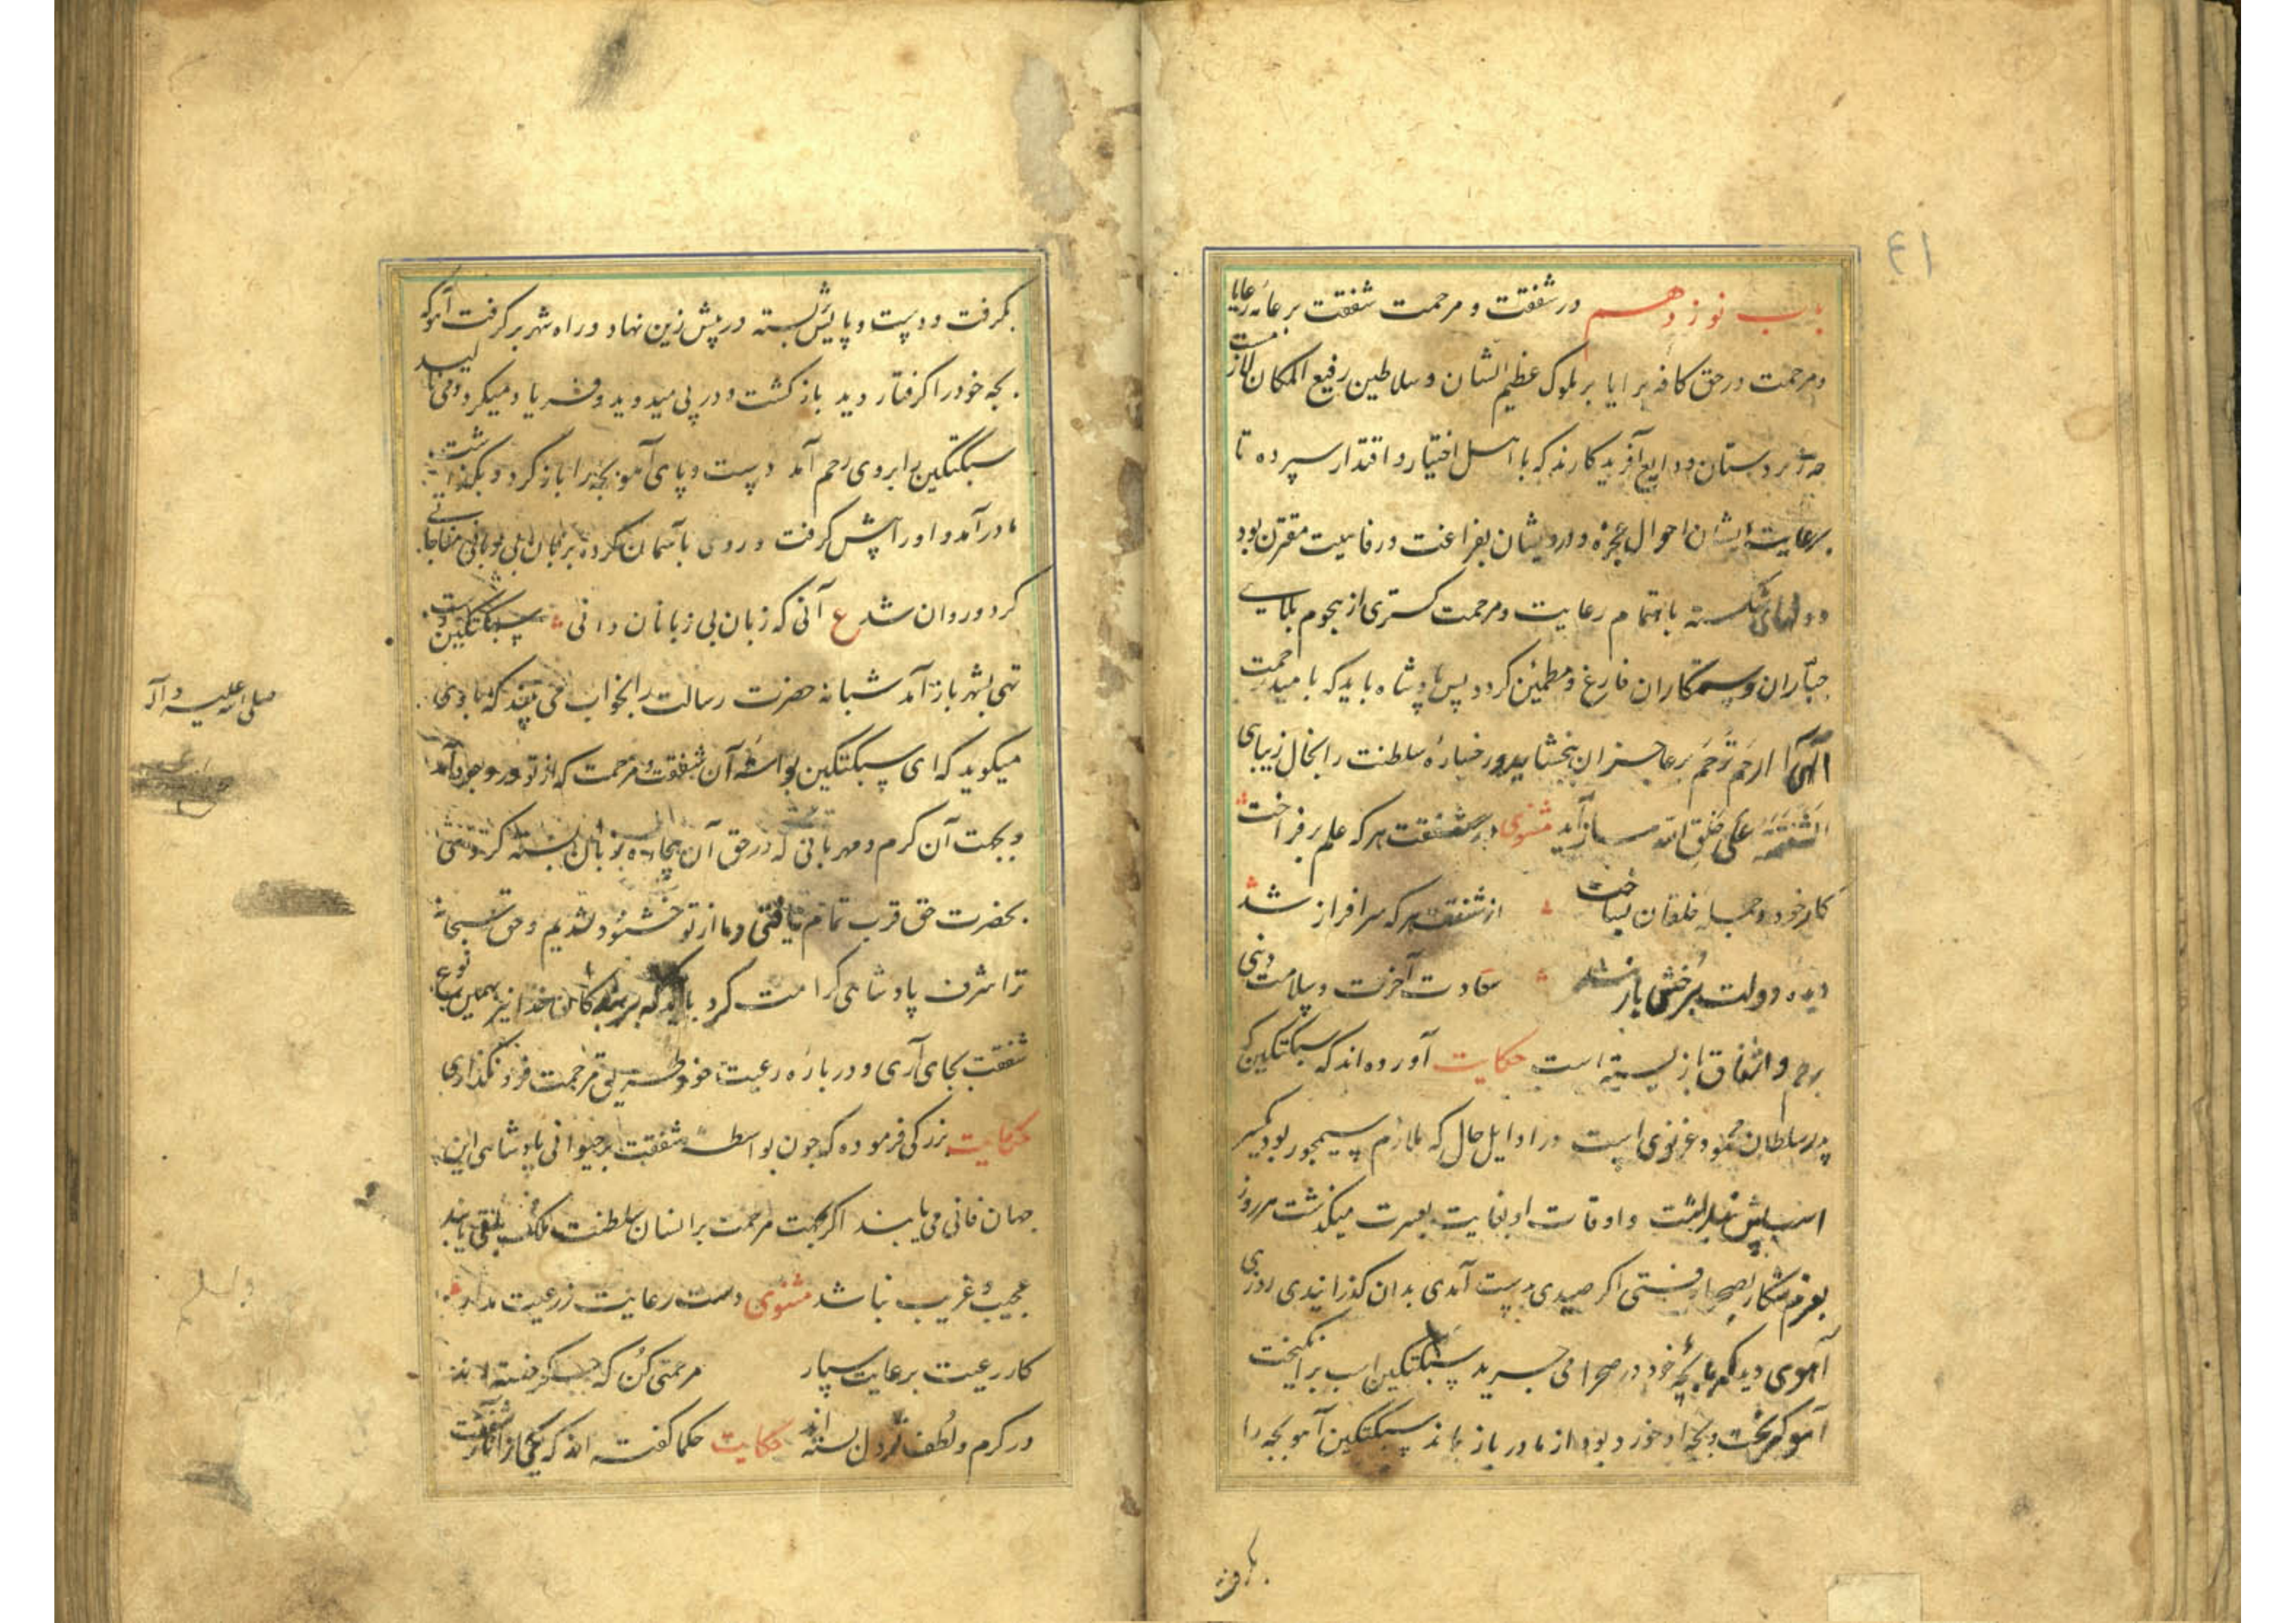 ٤١
باب نوزدهم در شفقت و مرحمت شفقت بر عامه رعایا
و مرحمت در حق کافه برایا بر ملوک عظیم الشان و سلاطین رفیع المکان لازمست
چه زیردستان ودایع آفریدکارند که با اهل اختیار و اقتدار سپرده تا
برعایت ایشان احوال عجزه و درویشان بفراغت و رفاهیت مقترن بود
و دلهای شکسته باهتمام رعایت و مرحمت کستری از هجوم بلای
جباران و ستمکاران فارغ و مطمئن کردد پس پادشاه باید که بامید رحمت
الهی ارحم ترحم بر عاجزان بخشاید و رخساره سلطنت را بخال زیبای
الشفقة علی خلق الله بیاراید مثنوی در شفقت هر که علم برفراخت
کار خود و جمله خلقان بساخت از شفقت هر که سرافراز شد
دیده دولت برخش باز شد سعادت آخرت و سلامت دنیی
برحم و اشفاق باز بسته است حکایت آورده اند که سبکتکین که
پدر سلطان محمود غزنوی است در اوایل حال که ملازم سیمجور بود یکسر
اسب بیش نداشت و اوقات او بغایت بعسرت میکذشت هر روز
بعزم شکار بصحرا رفتی اکر صیدی بدست آمدی بدان کذرانیدی روزی
آهوی دید که با بچه خود در صحرا می چرید سبکتکین اسب برانکیخت
آهو بکریخت و بچه او خورد بود از مادر باز ماند سبکتکین آهو بچه را
بکرفت
بکرفت و دست و پایش بسته در پیش زین نهاد و راه شهر برکرفت آهو که
بچه خود را کرفتار دید باز کشت و در پی میدوید و فریاد میکرد و می نالید
سبکتکین را بر وی رحم آمد دست و پای آهو بچه را باز کرد و بکذاشت
مادر آمد و او را پیش کرفت و روی بآسمان کرده بزبان بی زبانی مناجاتی
کرد و روان شد ع آنی که زبان بی زبانان دانی سبکتکین دست
تهی بشهر باز آمد شبانه حضرت رسالت را بخواب می بیند که با وی
صلی الله علیه و آله
میکوید که ای سبکتکین بواسطه آن شفقت و مرحمت که از تو در وجود آمد
و بجهت آن کرم و مهربانی که در حق آن بیچاره زبان بسته کردی
بحضرت حق قرب تمام یافتی و ما از تو خشنود شدیم و حق سبحانه
ترا شرف پادشاهی کرامت کرد باید که بر بندکان خدا نیز همین نوع
شفقت بجای آری و درباره رعیت خود طریق مرحمت فرو نکذاری
حکایت بزرکی فرموده که چون بواسطه شفقت بر حیوانی پادشاهی این
جهان فانی می یابند اکر بجهت مرحمت بر انسان سلطنت ملک باقی یابند
عجیب و غریب نباشد مثنوی دست رعایت ز رعیت مدار
کار رعیت برعایت سپار مرحمتی کن که جکر خسته اند
در کرم و لطف تو دل بسته اند حکایت حکما کفته اند که یکی از آثار شفقت